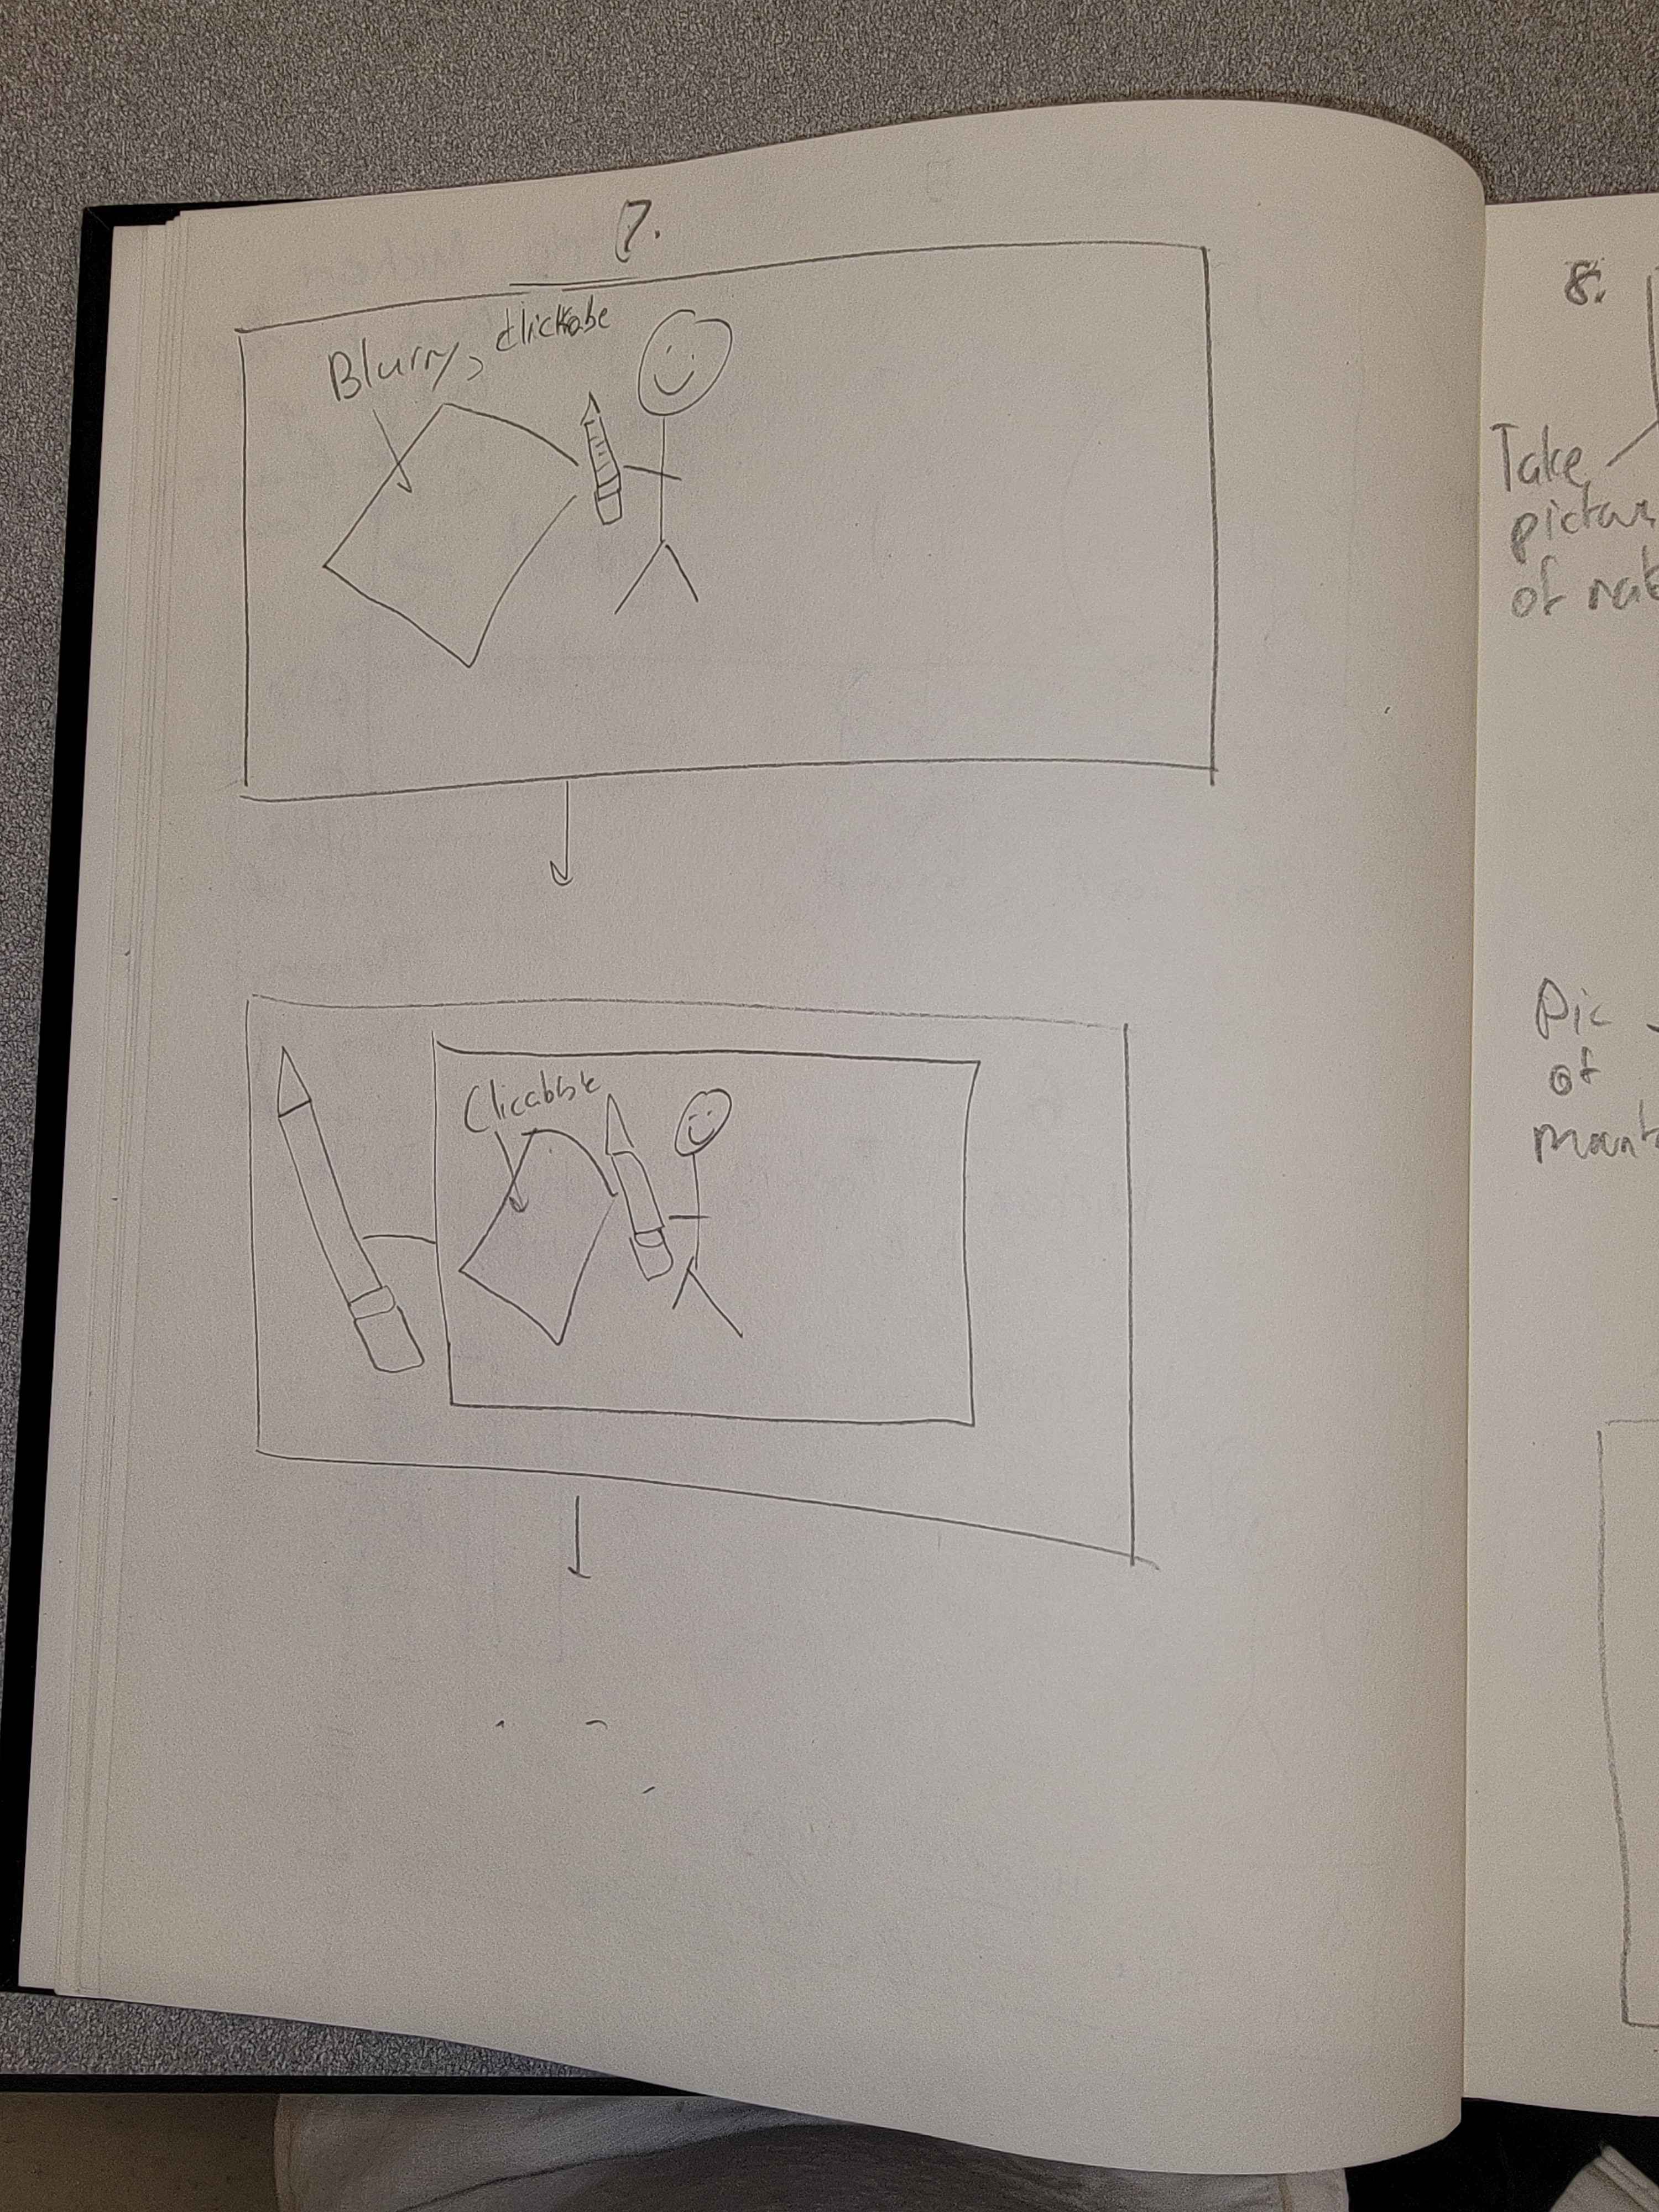 7.
Blurry, clickabe
Clicabble
8.
Take
pictur
of nat
Pic
of
mount